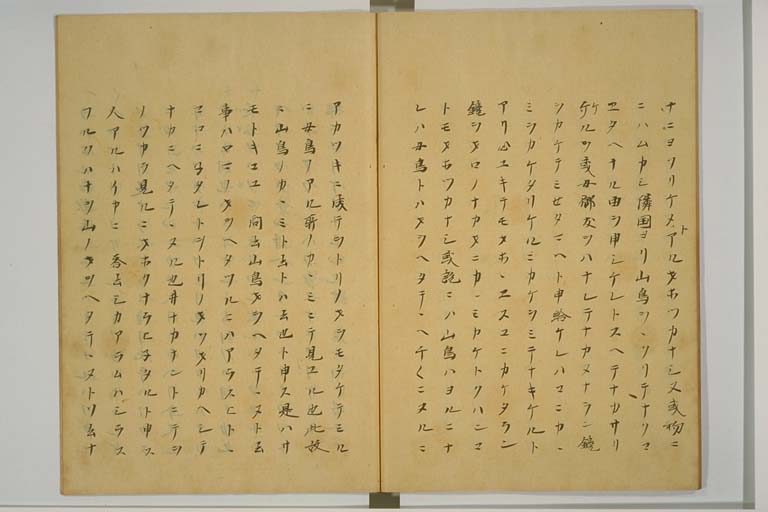 ナニヨソリケメトアルオホツカナシ又或物ニ
ニハムカシ隣国ヨリ山鳥ヲヽソリテナリコ
ヱタヘナル由ヲ申シケレトスヘテナカサリ
ケルヲ或女御友ヲハナレテナカメナラン鏡
ヲカケテミセタマヘト申給ケレハマコニカヽ
ミヲカケタリケルニカケヲミテナキケルト
アリ心エキテモオホヽエスユニカケタラン
鏡ヲオロノナカオニカヽミカケトイハンコ
トモオホツカナシ或説ニハ山鳥ハヨルニナ
レハ女鳥トハオヲヘタテヽヘチ〱ニヌルニ
アカツキニ成テヲトリノオヲモタケテミル
ニ女鳥ノアル所ノカヽミニテ見ユル也此故
ニ山鳥ノカヽミト云トハ云也ト申ス是ハサ
モトキコユ 問云山鳥オヲヘタテヽヌト云
事ハマコニオヲヘタツルニハアラスヒトヽ
コロニヌタレトヲトリノオヲオリカヘシテ
ナカニヘタテヽヌル也井ナカ人ナントニテヲ
ノツカラ見ルニオホクナラヒヰタルト申ス
人アルハイカニ 答云シカアラムハシラス
フルクハナヲ山ノオヲヘタテヽヌトソ云ナ